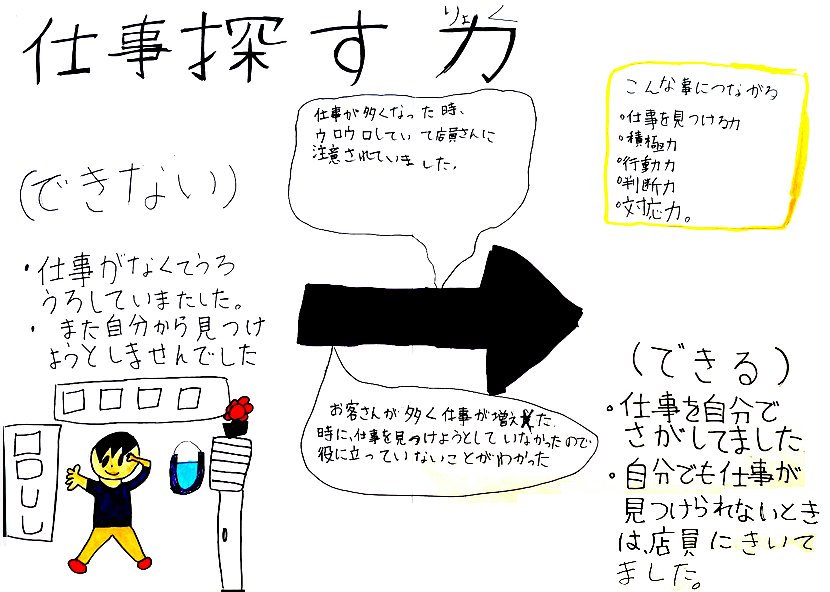 仕事探す力
りょく
仕事が多くなった時、
ウロウロしていて店員さんに
注意されていました。
こんな事につながる
・仕事を見つける力
・積極力
・行動力
・判断力
・対応力。
(できない)
・仕事がなくてうろ
うろしていまたした。
・また自分から見つけ
ようとしませんでした
お客さんが多く仕事が増えた
時に、仕事を見つけようとしていなかったので
役に立っていないことがわかった
(できる)
・仕事を自分で
さがしてました
・自分でも仕事が
見つけられないとき
は、店員にきいて
ました。